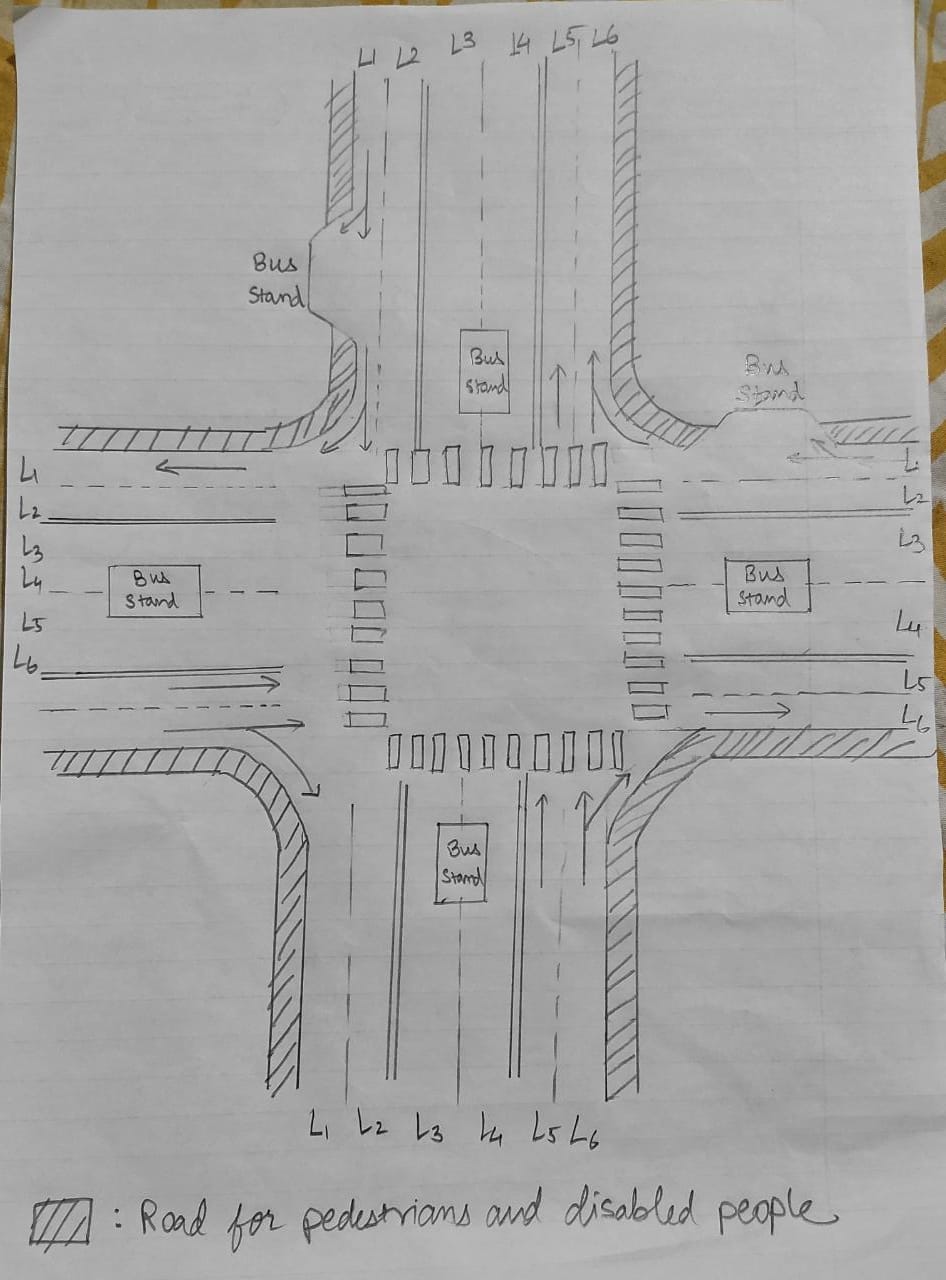 L1 L2 L3 L4 L5 L6
Bus
Stand
Bus
Stand
Bus
Stand
L1
L2
L3
L4
L5
L6
Bus
Stand
L1
L2
L3
L4
L5
L6
Bus
Stand
Bus
Stand
L1 L2 L3 L4 L5 L6
: Road for pedestrians and disabled people